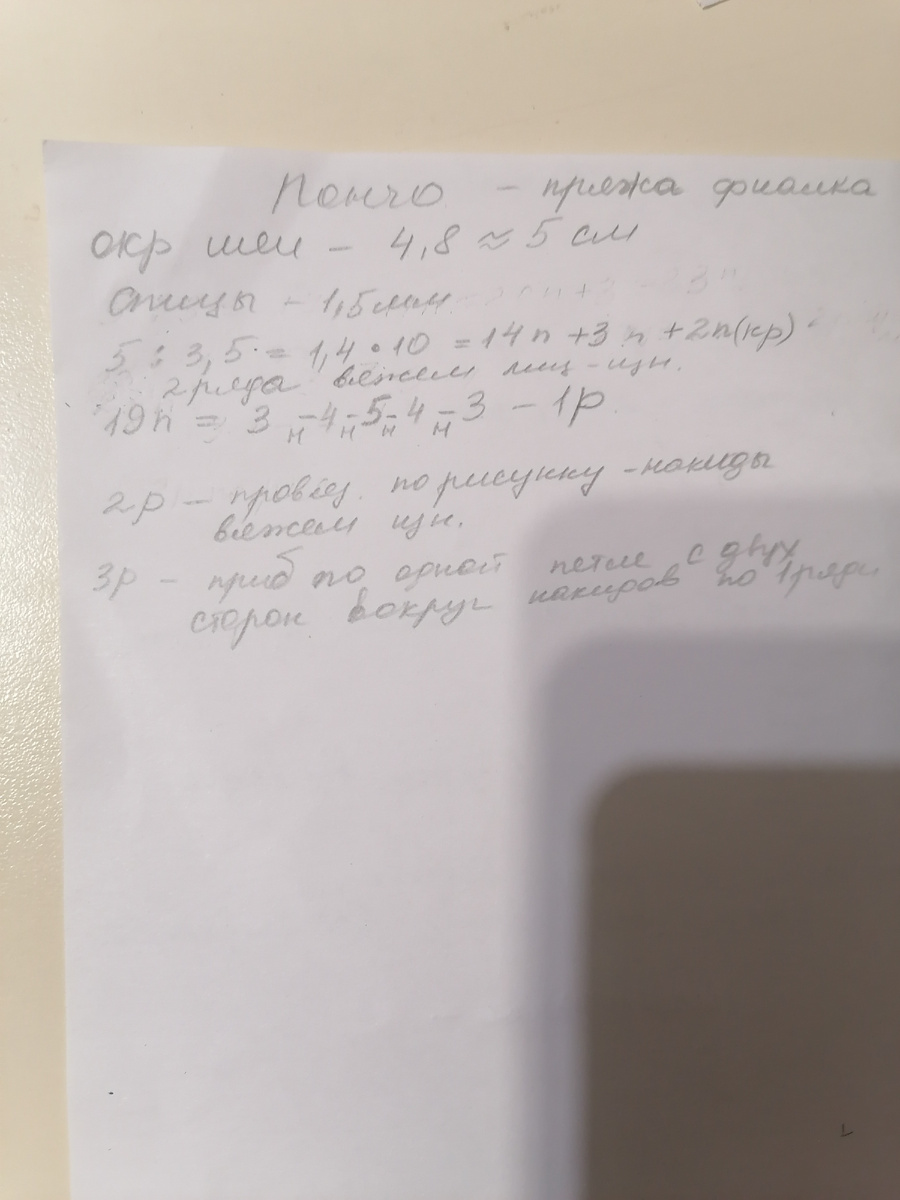 Пончо - пряжа фиалка
окр шеи - 4,8 ≈ 5 см
Спицы - 1,5 мм
5 : 3,5 = 1,4 • 10 = 14п + 3п + 2п(кр)
2 ряда вяжем лиц-изн.
19п = 3 - 4 - 5 - 4 - 3 - 1р
н н н н
2р - провяз. по рисунку - накиды
вяжем изн.
3р - приб по одной петле с двух
сторон вокруг накидов по 1 ряду